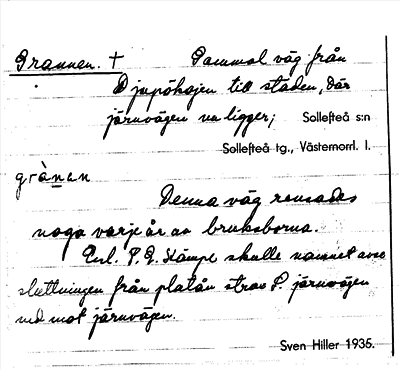 Grannen. + Gammal väg från
Djupöhajen till staden, där
järnvägen nu ligger; Sollefteå s:n
Sollefteå tg., Västernorrl. l.
grànən
Denna väg rensades
noga varje år av bruksborna.
Enl. P. G. Kämpe skulle namnet avse
sluttningen från platån strax S. järnvägen
ned mot järnvägen.
Sven Hiller 1935.